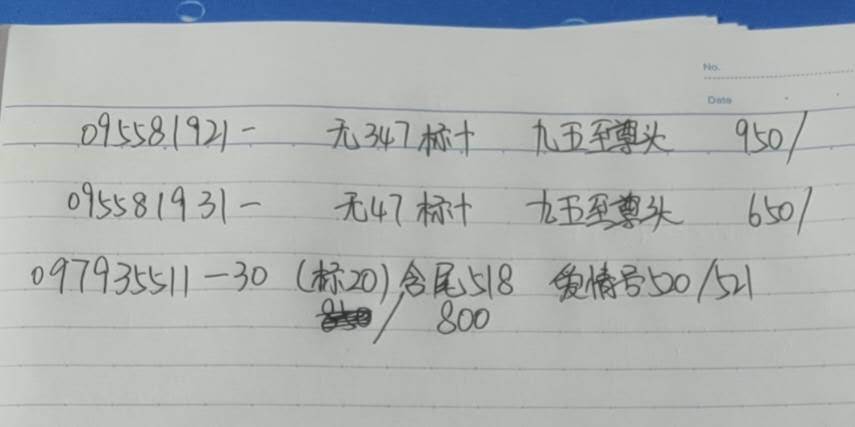 No.
Date
095581921- 无347标十 九五至尊头 950/
095581931- 无47标十 九五至尊头 650/
097935511-30 (标20)含尾518 爱情号520/521
/ 800